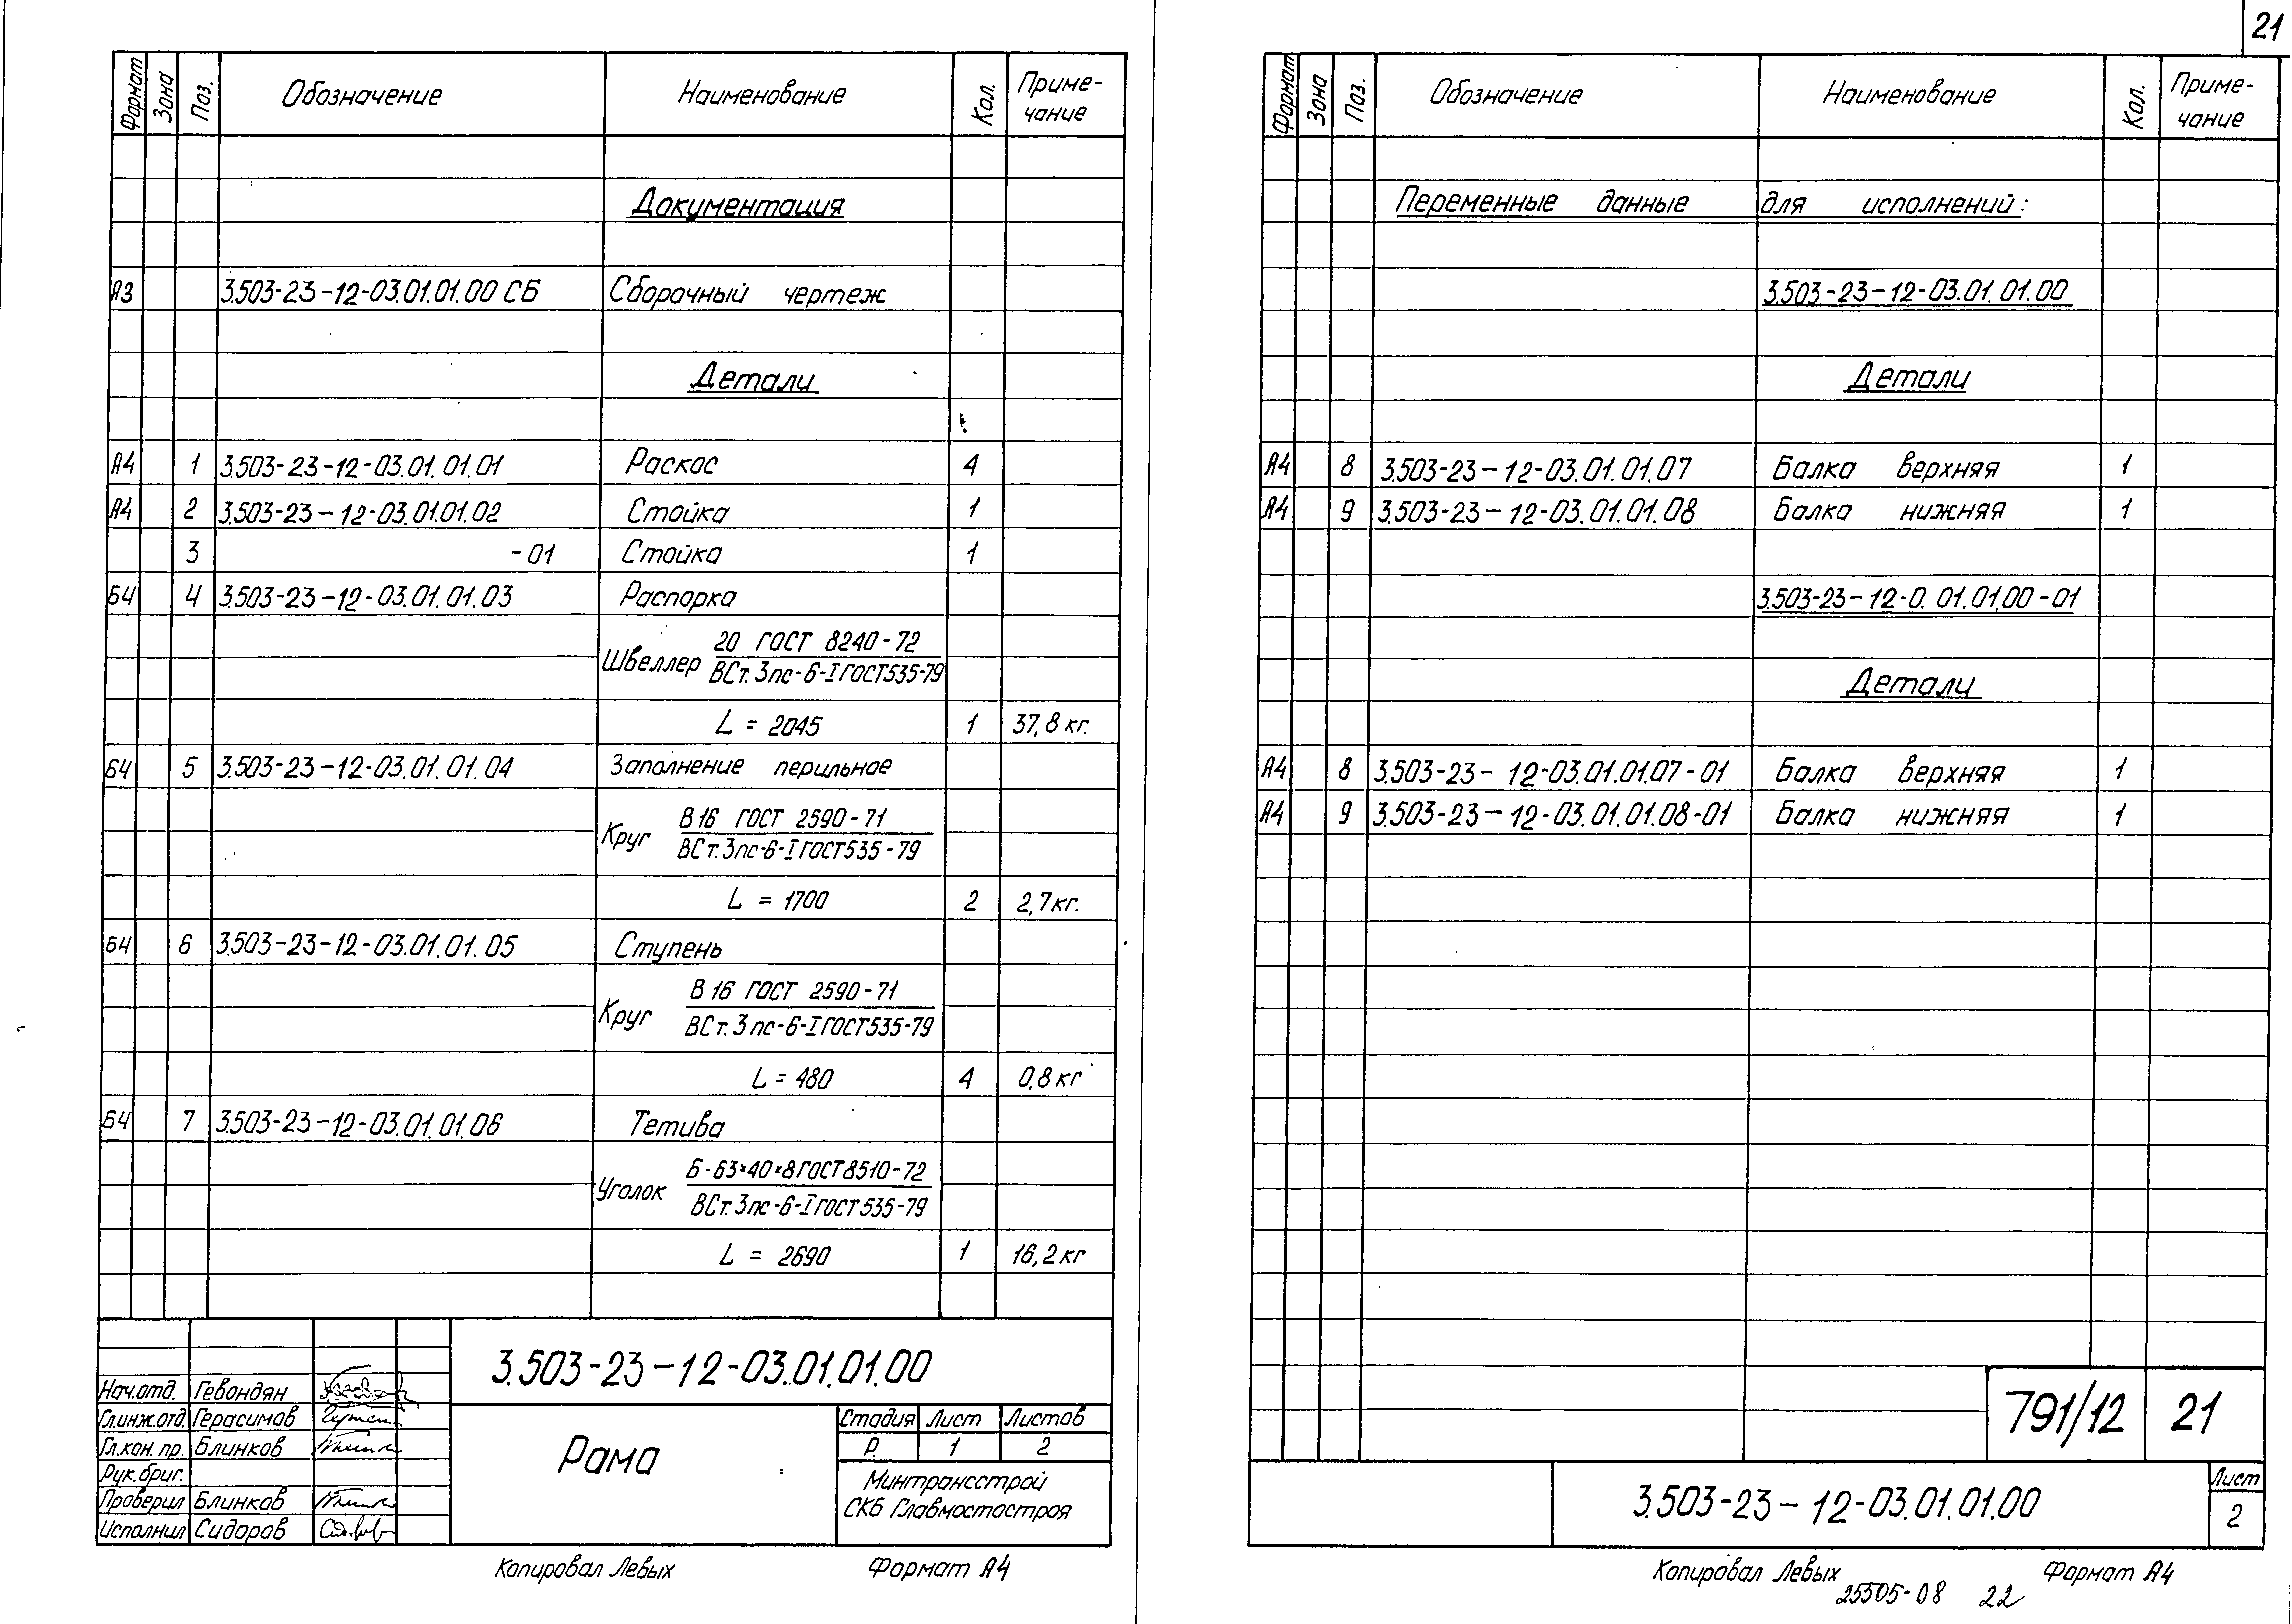 21
Формат Зона Поз. Обозначение Наименование Кол. Приме-
чание
Документация
А3 3.503-23-12-03.01.01.00 СБ Сборочный чертеж
Детали
А4 1 3.503-23-12-03.01.01.01 Раскос 4
А4 2 3.503-23-12-03.01.01.02 Стойка 1
3 -01 Стойка 1
Б4 4 3.503-23-12-03.01.01.03 Распорка
20 ГОСТ 8240-72
Швеллер ВСт.3пс-6-I ГОСТ535-79
L = 2045 1 37,8 кг.
Б4 5 3.503-23-12-03.01.01.04 Заполнение перильное
В16 ГОСТ 2590-71
Круг ВСт.3пс-6-I ГОСТ535-79
L = 1700 2 2,7 кг.
Б4 6 3.503-23-12-03.01.01.05 Ступень
В16 ГОСТ 2590-71
Круг ВСт.3пс-6-I ГОСТ535-79
L = 480 4 0,8 кг
Б4 7 3.503-23-12-03.01.01.06 Тетива
Б-63×40×8 ГОСТ8510-72
Уголок ВСт.3пс-6-I ГОСТ535-79
L = 2690 1 16,2 кг
3.503-23-12-03.01.01.00
Нач.отд. Гевондян
Гл.инж.отд Герасимов
Гл.кон.пр. Блинков
Рук.бриг.
Проверил Блинков
Исполнил Сидоров
Рама
Стадия Лист Листов
Р. 1 2
Минтрансстрой
СКБ Главмостостроя
Копировал Левых Формат А4
Формат Зона Поз. Обозначение Наименование Кол. Приме-
чание
Переменные данные для исполнений:
3.503-23-12-03.01.01.00
Детали
А4 8 3.503-23-12-03.01.01.07 Балка верхняя 1
А4 9 3.503-23-12-03.01.01.08 Балка нижняя 1
3.503-23-12-0. 01.01.00-01
Детали
А4 8 3.503-23-12-03.01.01.07-01 Балка верхняя 1
А4 9 3.503-23-12-03.01.01.08-01 Балка нижняя 1
791/12 21
3.503-23-12-03.01.01.00
Лист
2
Копировал Левых Формат А4
25505-08 22